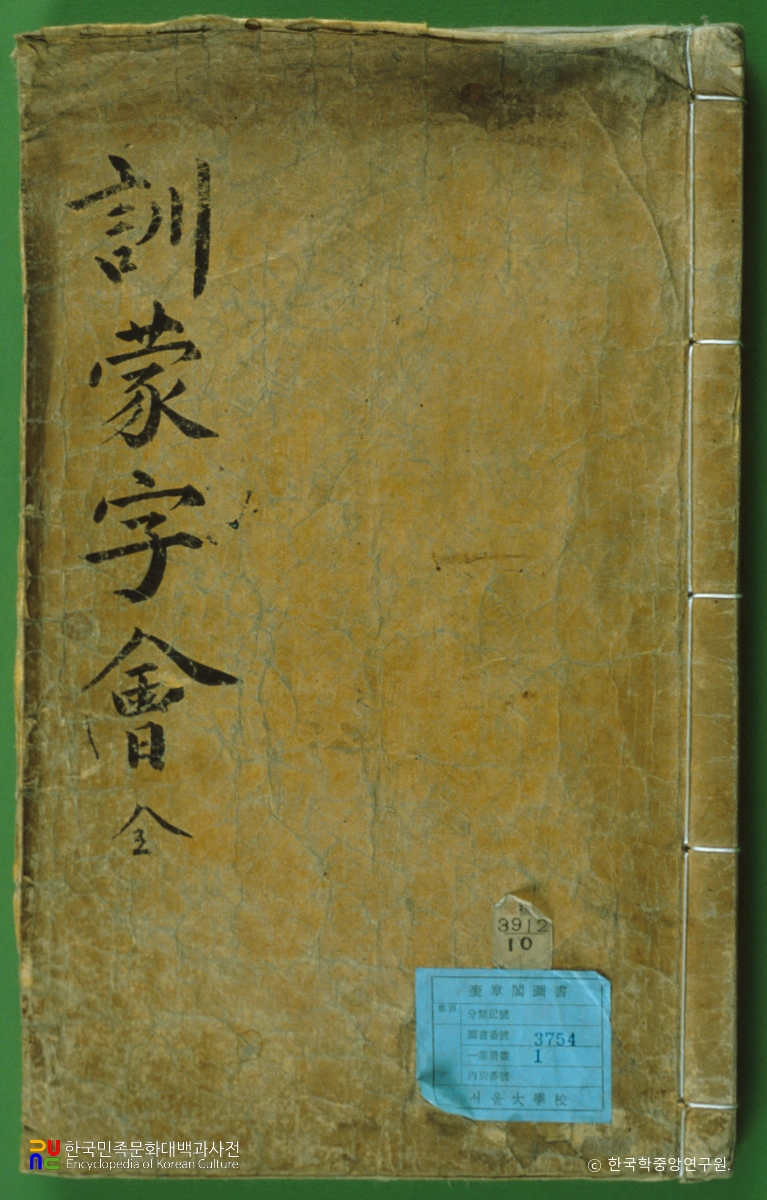 訓蒙字會 全
3912
10
奎章閣圖書
分類記號
圖書番號 3754
一部冊數 1
內別番號
서울大學校
한국민족문화대백과사전
Encyclopedia of Korean Culture
ⓒ 한국학중앙연구원.